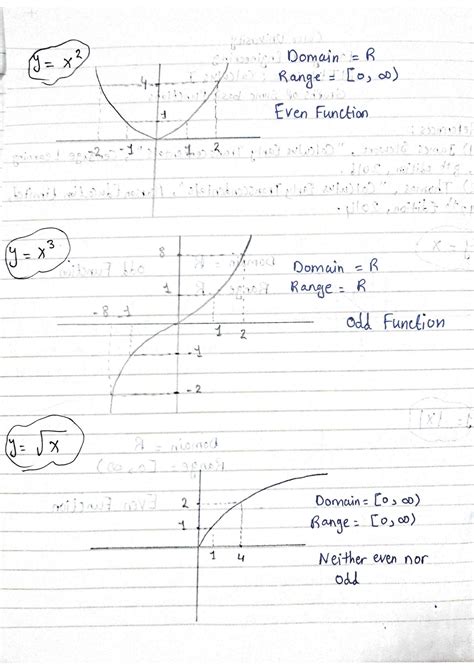 y = x²
Domain = R
Range = [0, ∞)
Even Function
4
1
-2 -1 1 2
y = x³
8
1
Domain = R
Range = R
-8 -1
1 2
Odd Function
-1
-2
y = √x
2
1
1 4
Domain = [0, ∞)
Range = [0, ∞)
Neither even nor
odd